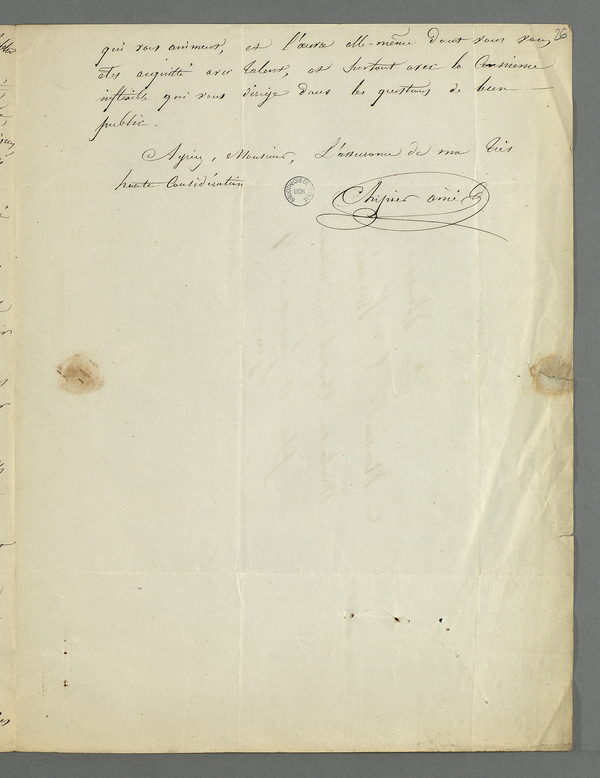 26
qui vous animent, et l'œuvre elle-même dont vous vous
êtes acquitté avec talent, et surtout avec la Conscience
inflexible qui vous dirige dans les questions de bien
public.
Agréez, Monsieur, L'assurance de ma très
haute Considération
BIBLIOTHEQUE DE LA VILLE
LYON
ainé